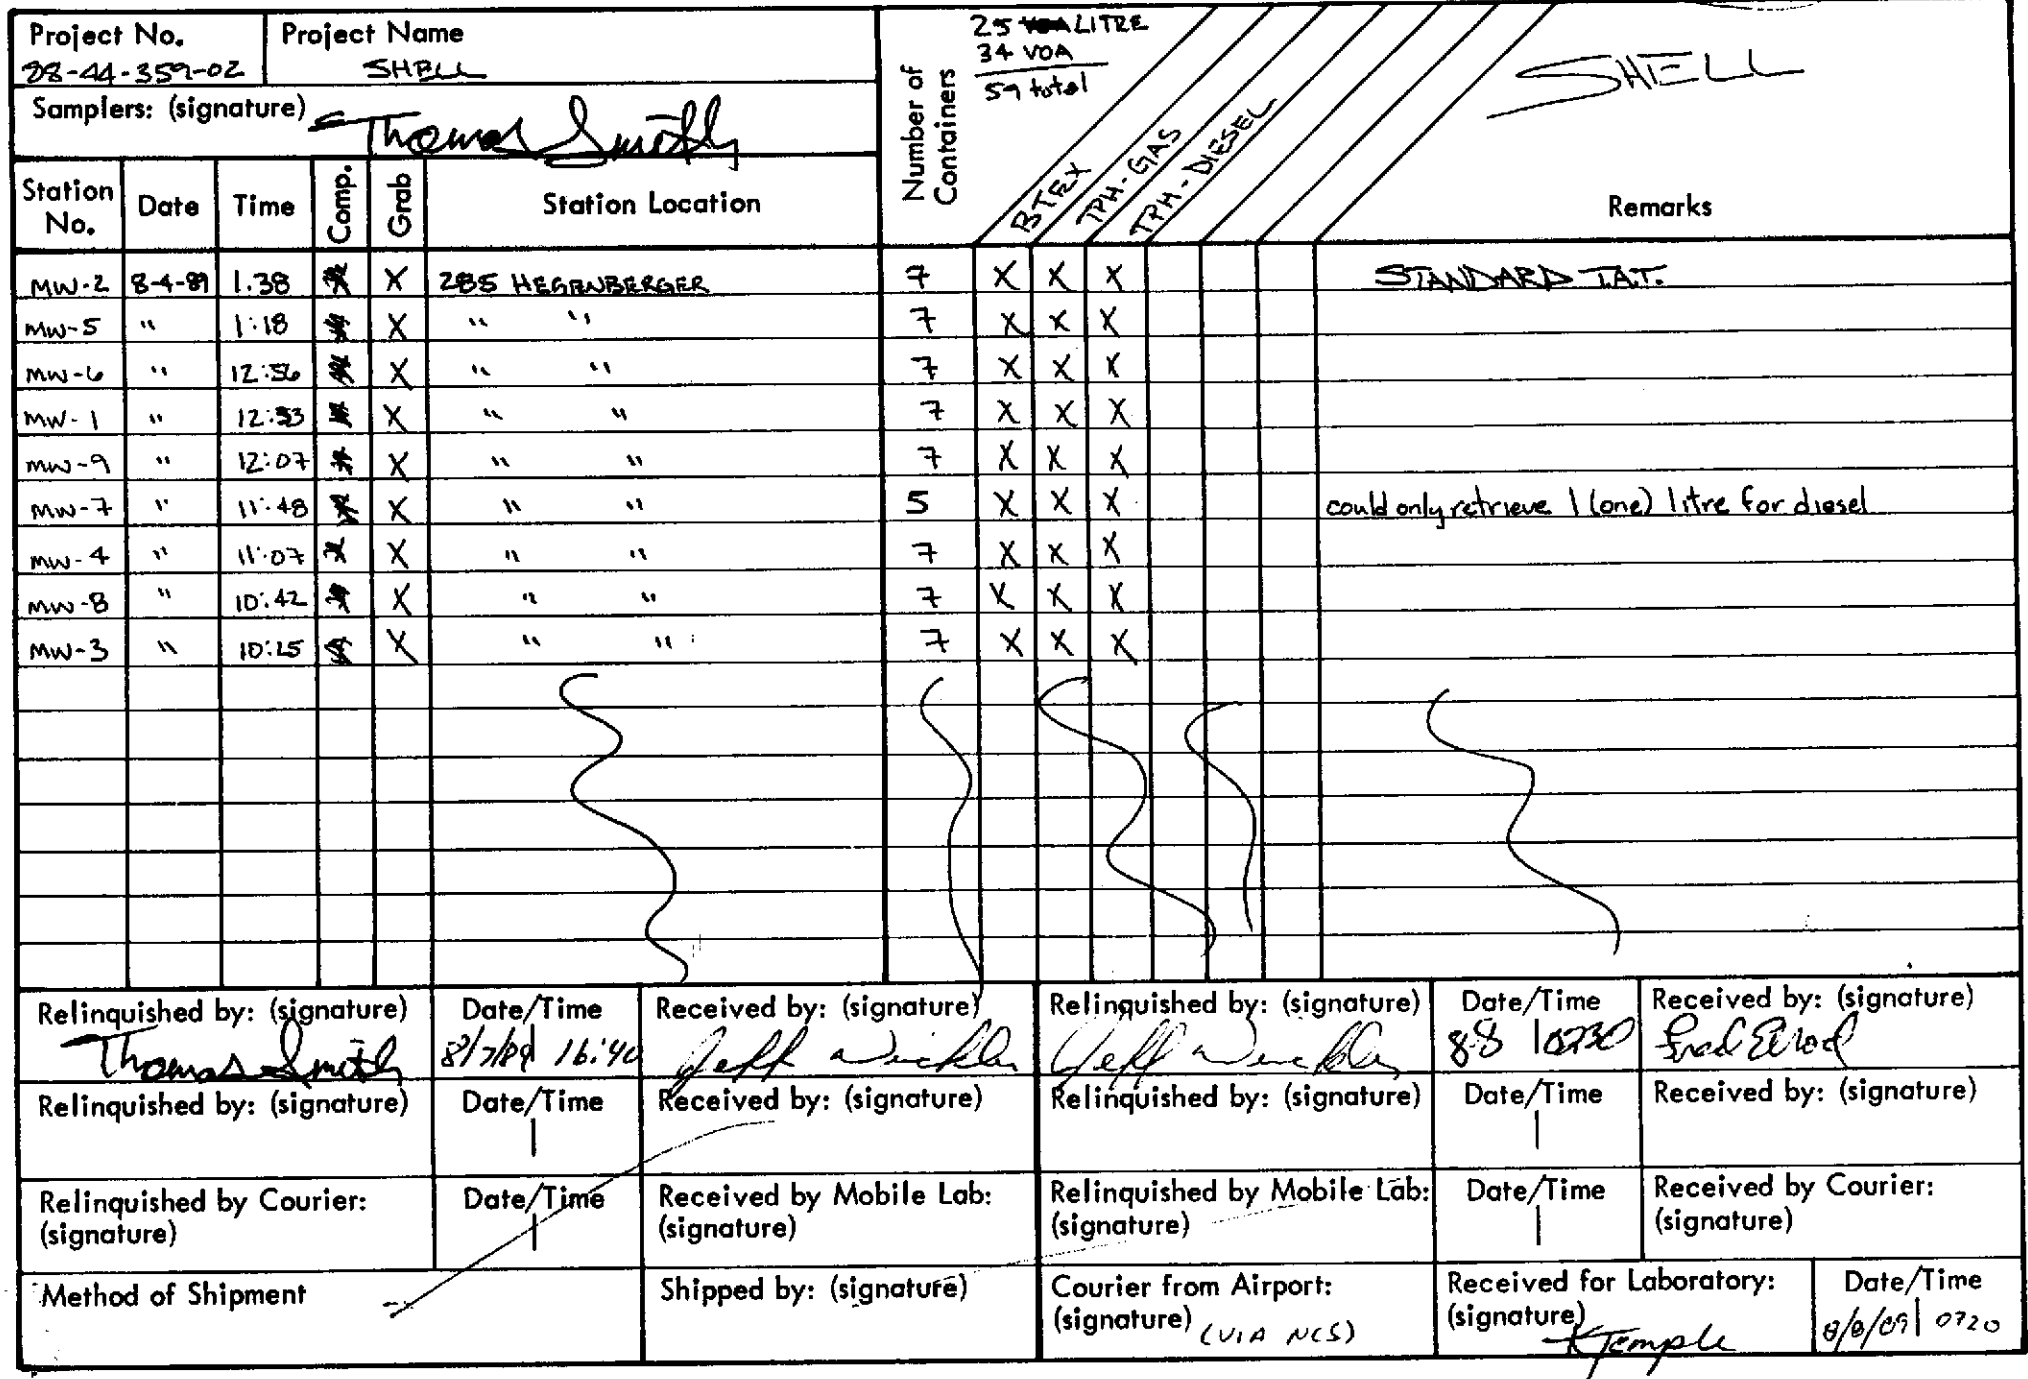 Project No. Project Name
88-44-359-02 SHELL
Samplers: (signature) Thomas Smith
Number of Containers
25 LITRE
34 VOA
59 total
BTEX
TPH-GAS
TPH-DIESEL
SHELL
Station No. Date Time Comp. Grab Station Location Remarks
MW-2 8-4-89 1:38 X 285 HEGENBERGER 7 X X X STANDARD T.A.T.
MW-5 " 1:18 X " " 7 X X X
MW-6 " 12:56 X " " 7 X X X
MW-1 " 12:33 X " " 7 X X X
MW-9 " 12:07 X " " 7 X X X
MW-7 " 11:48 X " " 5 X X X could only retrieve 1 (one) litre for diesel
MW-4 " 11:07 X " " 7 X X X
MW-8 " 10:42 X " " 7 X X X
MW-3 " 10:15 X " " 7 X X X
Relinquished by: (signature) Date/Time Received by: (signature) Relinquished by: (signature) Date/Time Received by: (signature)
Thomas Smith 8/7/89 16:40 Jeff Jeff 8-8
Relinquished by: (signature) Date/Time Received by: (signature) Relinquished by: (signature) Date/Time Received by: (signature)
Relinquished by Courier: (signature) Date/Time Received by Mobile Lab: (signature) Relinquished by Mobile Lab: (signature) Date/Time Received by Courier: (signature)
Method of Shipment Shipped by: (signature) Courier from Airport: (signature) (VIA NCS) Received for Laboratory: (signature) KTemple Date/Time 8/8/89 0720